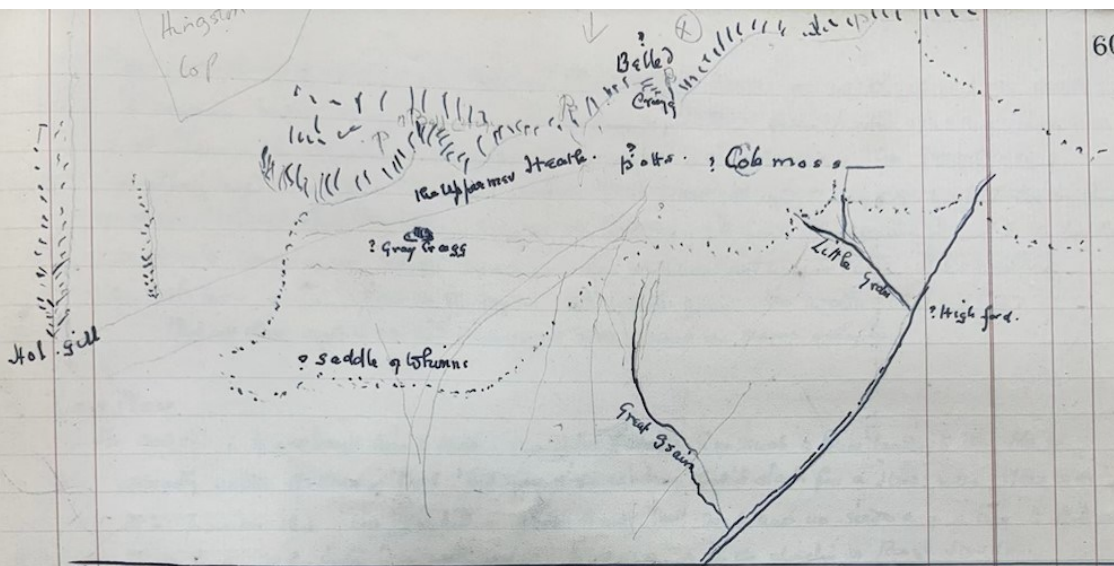 Cop
60
?
Belled
Cragg
The Uppermer Heath.
? Potts.
? Cob moss
? Gray Cragg
Little Grain
? High ford.
Hol. gill
? Saddle of Whinns
Great Grain